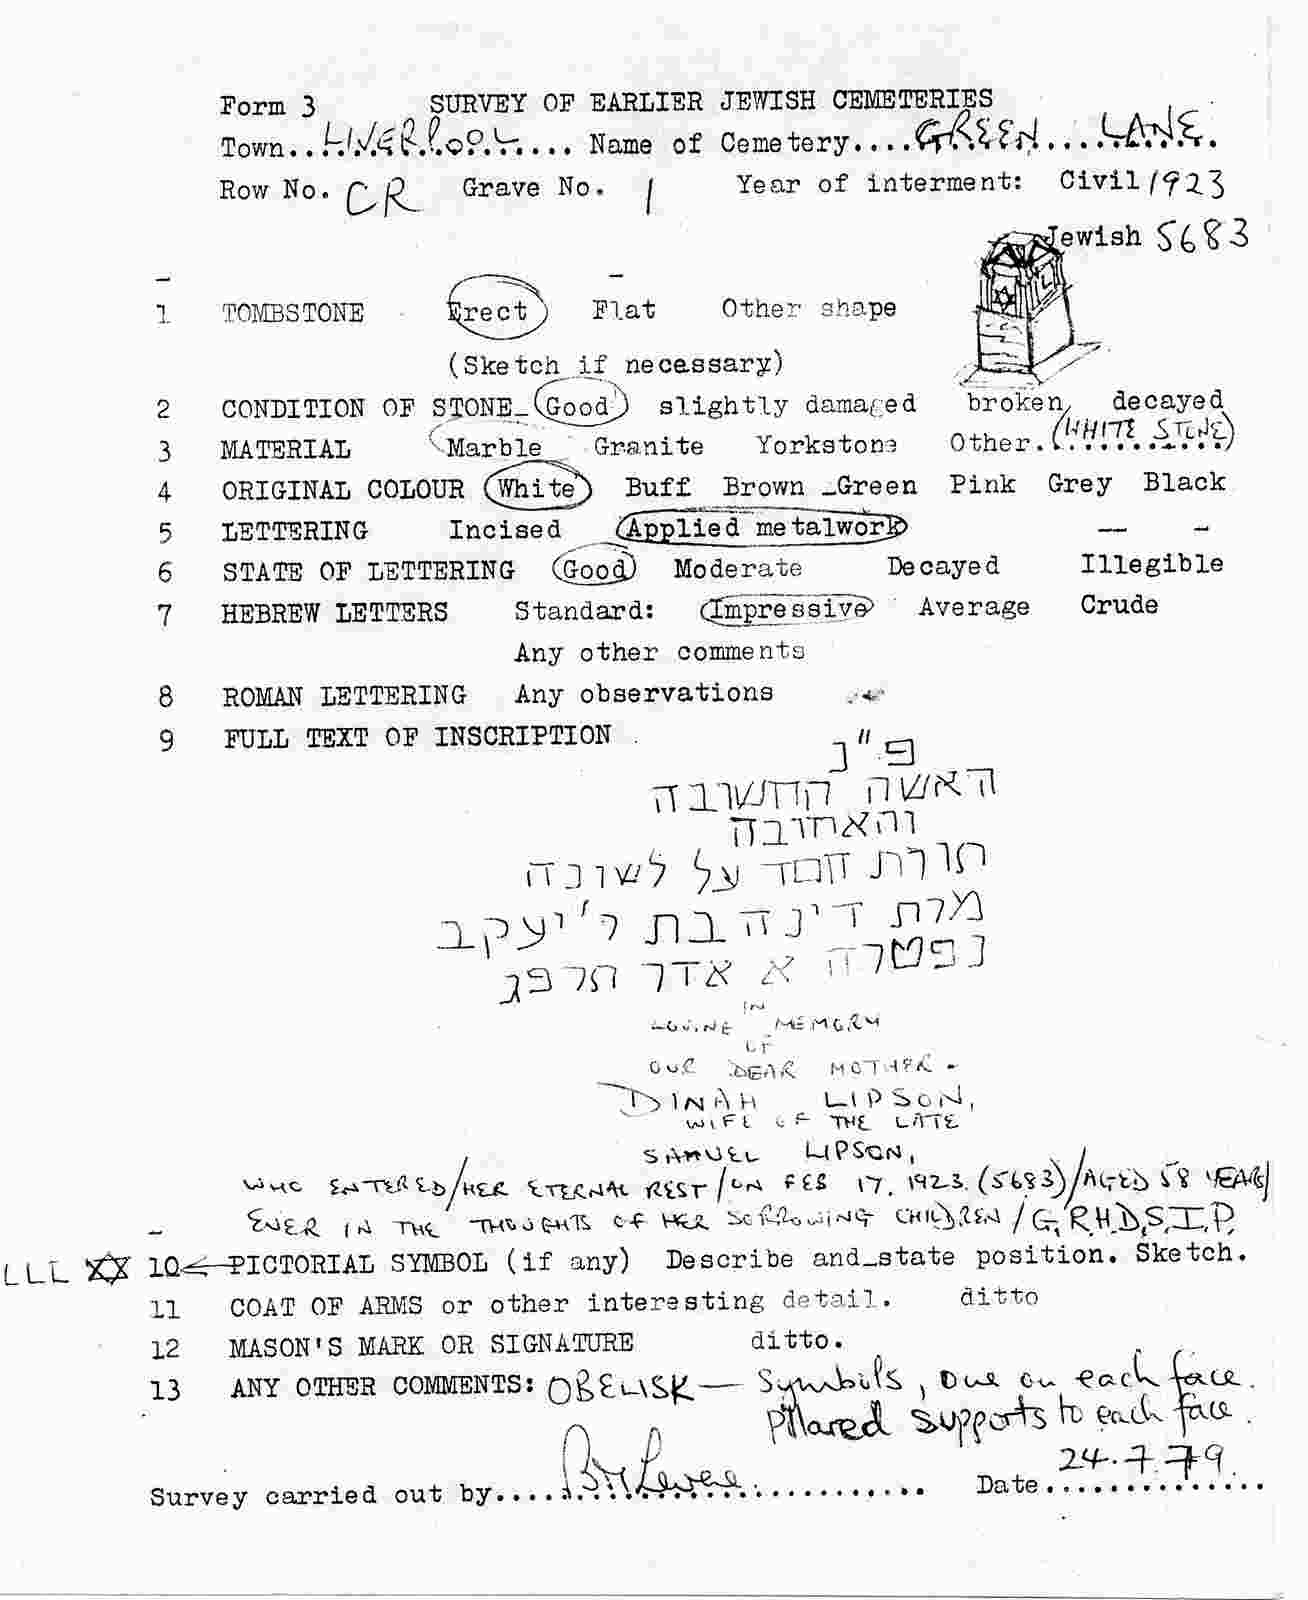 Form 3 SURVEY OF EARLIER JEWISH CEMETERIES
Town..LIVERPOOL.... Name of Cemetery....GREEN....LANE.
Row No. CR Grave No. 1 Year of interment: Civil 1923
Jewish 5683
1 TOMBSTONE Erect Flat Other shape
(Sketch if necessary)
2 CONDITION OF STONE Good slightly damaged broken decayed
3 MATERIAL Marble Granite Yorkstone Other.(WHITE STONE)
4 ORIGINAL COLOUR White Buff Brown Green Pink Grey Black
5 LETTERING Incised Applied metalwork
6 STATE OF LETTERING Good Moderate Decayed Illegible
7 HEBREW LETTERS Standard: Impressive Average Crude
Any other comments
8 ROMAN LETTERING Any observations
9 FULL TEXT OF INSCRIPTION
פ"נ
האשה החשובה
והאהובה
תורת חסד על לשונה
מרת דינה בת ר' יעקב
נפטרה א אדר תרפג
IN
LOVING MEMORY
OF
OUR DEAR MOTHER -
DINAH LIPSON,
WIFE OF THE LATE
SAMUEL LIPSON,
WHO ENTERED/HER ETERNAL REST/ON FEB 17. 1923. (5683)/AGED 58 YEARS/
EVER IN THE THOUGHTS OF HER SORROWING CHILDREN/G.R.H.D.S.I.P.
LLL 10 PICTORIAL SYMBOL (if any) Describe and state position. Sketch.
11 COAT OF ARMS or other interesting detail. ditto
12 MASON'S MARK OR SIGNATURE ditto.
13 ANY OTHER COMMENTS: OBELISK — Symbols, one on each face.
Pillared supports to each face.
Survey carried out by....B M Levene.... Date 24.7.79